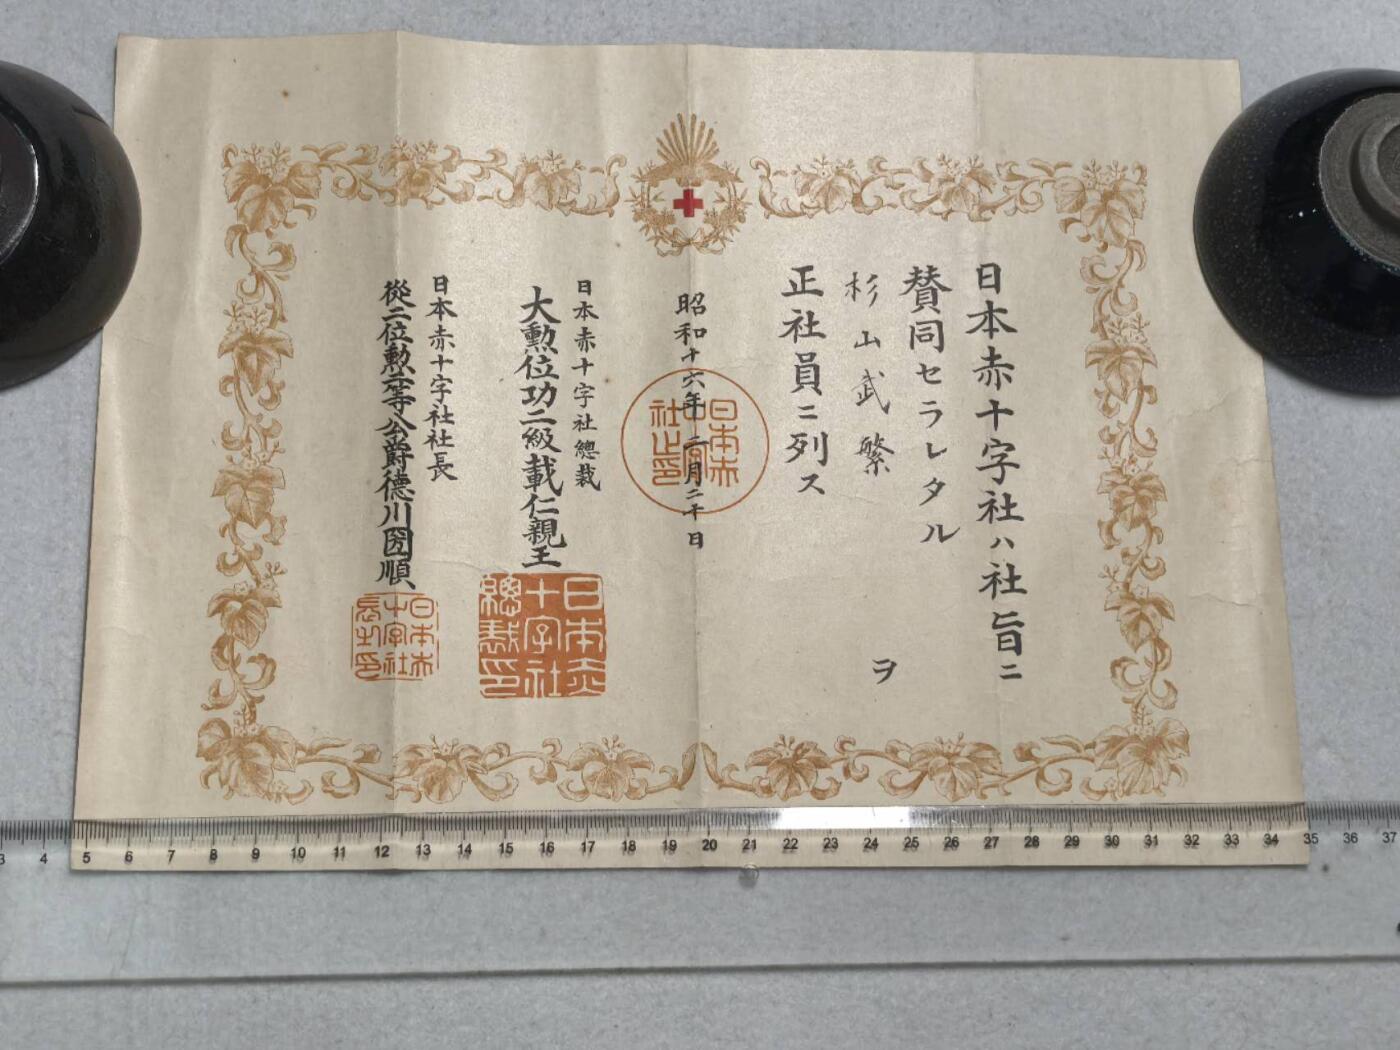 日本赤十字社ハ社旨ニ
賛同セラレタル
杉山武繁ヲ
正社員ニ列ス
昭和十六年二月二十日
日本赤十字社之印
日本赤十字社總裁
大勲位功二級載仁親王
日本赤十字社總裁印
日本赤十字社社長
從二位勲三等公爵德川圀順
日本赤十字社長之印
3 4 5 6 7 8 9 10 11 12 13 14 15 16 17 18 19 20 21 22 23 24 25 26 27 28 29 30 31 32 33 34 35 36 37